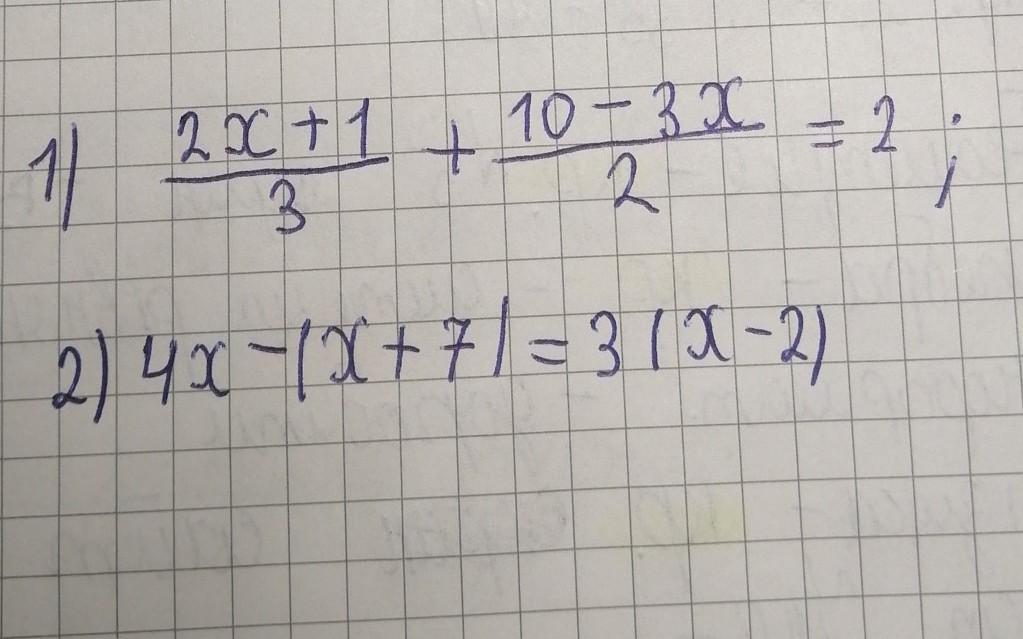 1) (2x + 1)/3 + (10 - 3x)/2 = 2 ;
2) 4x - (x + 7) = 3 (x - 2)